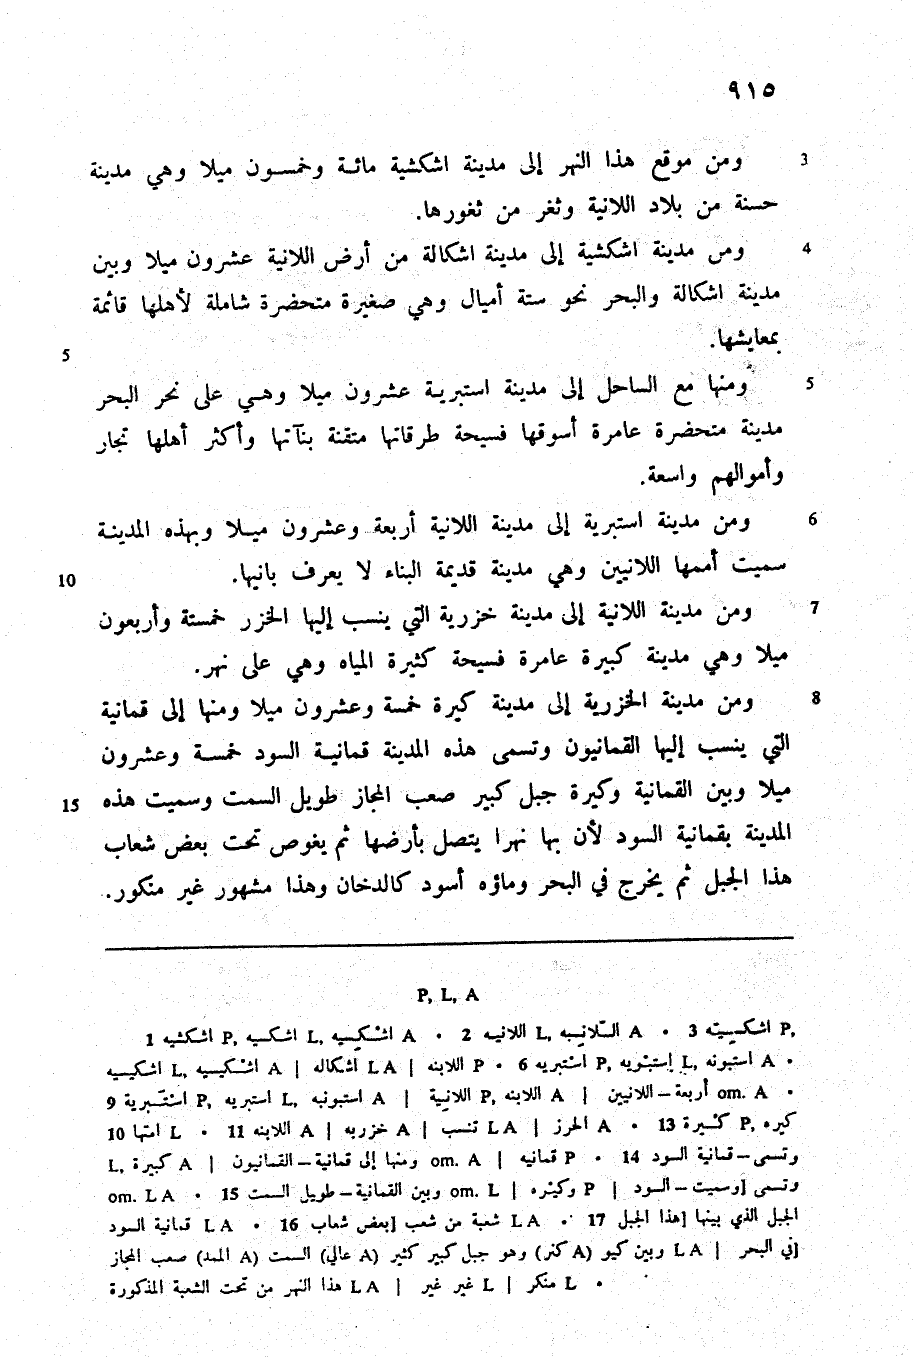 ٩١٥
3 ومن موقع هذا النهر إلى مدينة اشكشية مائة وخمسون ميلا وهي مدينة
حسنة من بلاد اللانية وثغر من ثغورها.
4 ومن مدينة اشكشية إلى مدينة اشكالة من أرض اللانية عشرون ميلا وبين
مدينة اشكالة والبحر نحو ستة أميال وهي صغيرة متحضرة شاملة لأهلها قائمة
5 بمعايشها.
5 ومنها مع الساحل إلى مدينة استبرية عشرون ميلا وهي على نحر البحر
مدينة متحضرة عامرة أسوقها فسيحة طرقاتها متقنة بنآتها وأكثر أهلها تجار
وأموالهم واسعة.
6 ومن مدينة استبرية إلى مدينة اللانية أربعة وعشرون ميلا وبهذه المدينة
10 سميت أممها اللانيين وهي مدينة قديمة البناء لا يعرف بانيها.
7 ومن مدينة اللانية إلى مدينة خزرية التي ينسب إليها الخزر خمسة وأربعون
ميلا وهي مدينة كبيرة عامرة فسيحة كثيرة المياه وهي على نهر.
8 ومن مدينة الخزرية إلى مدينة كيرة خمسة وعشرون ميلا ومنها إلى قمانية
التي ينسب إليها القمانيون وتسمى هذه المدينة قمانية السود خمسة وعشرون
15 ميلا وبين القمانية وكيرة جبل كبير صعب المجاز طويل السمت وسميت هذه
المدينة بقمانية السود لأن بها نهرا يتصل بأرضها ثم يغوص تحت بعض شعاب
هذا الجبل ثم يخرج في البحر وماؤه أسود كالدخان وهذا مشهور غير منكور.
P, L, A
1 اشكشيه P, اشكيه L, A • 2 اللانيه L, A • 3 P,
L, A | اشكاله L A | اللاينه P • 6 P, L, استبونه A •
9 P, استبريه L, استبونيه A | اللانية P, اللاينه A | أربعة – اللانيين om. A •
10 امتها L • 11 اللاينه A | خزريه A | تنسب L A | الحرز A • 13 P, كيره
L, كبيرة A | ومنها إلى قمانية – القمانيون om. A | قمانيه P • 14 وتسمى – قمانية السود
om. L A • 15 وبين القمانية – طويل السمت om. L | P | وسميت – السود] وتسمى
قمانية السود L A • 16 بعض شعاب] شعبة من شعب L A • 17 هذا الجبل] الجبل الذي بينها
وبين كيو L A | في البحر]
هذا النهر من تحت الشعبة المذكورة L A | غير غير L | منكر L •